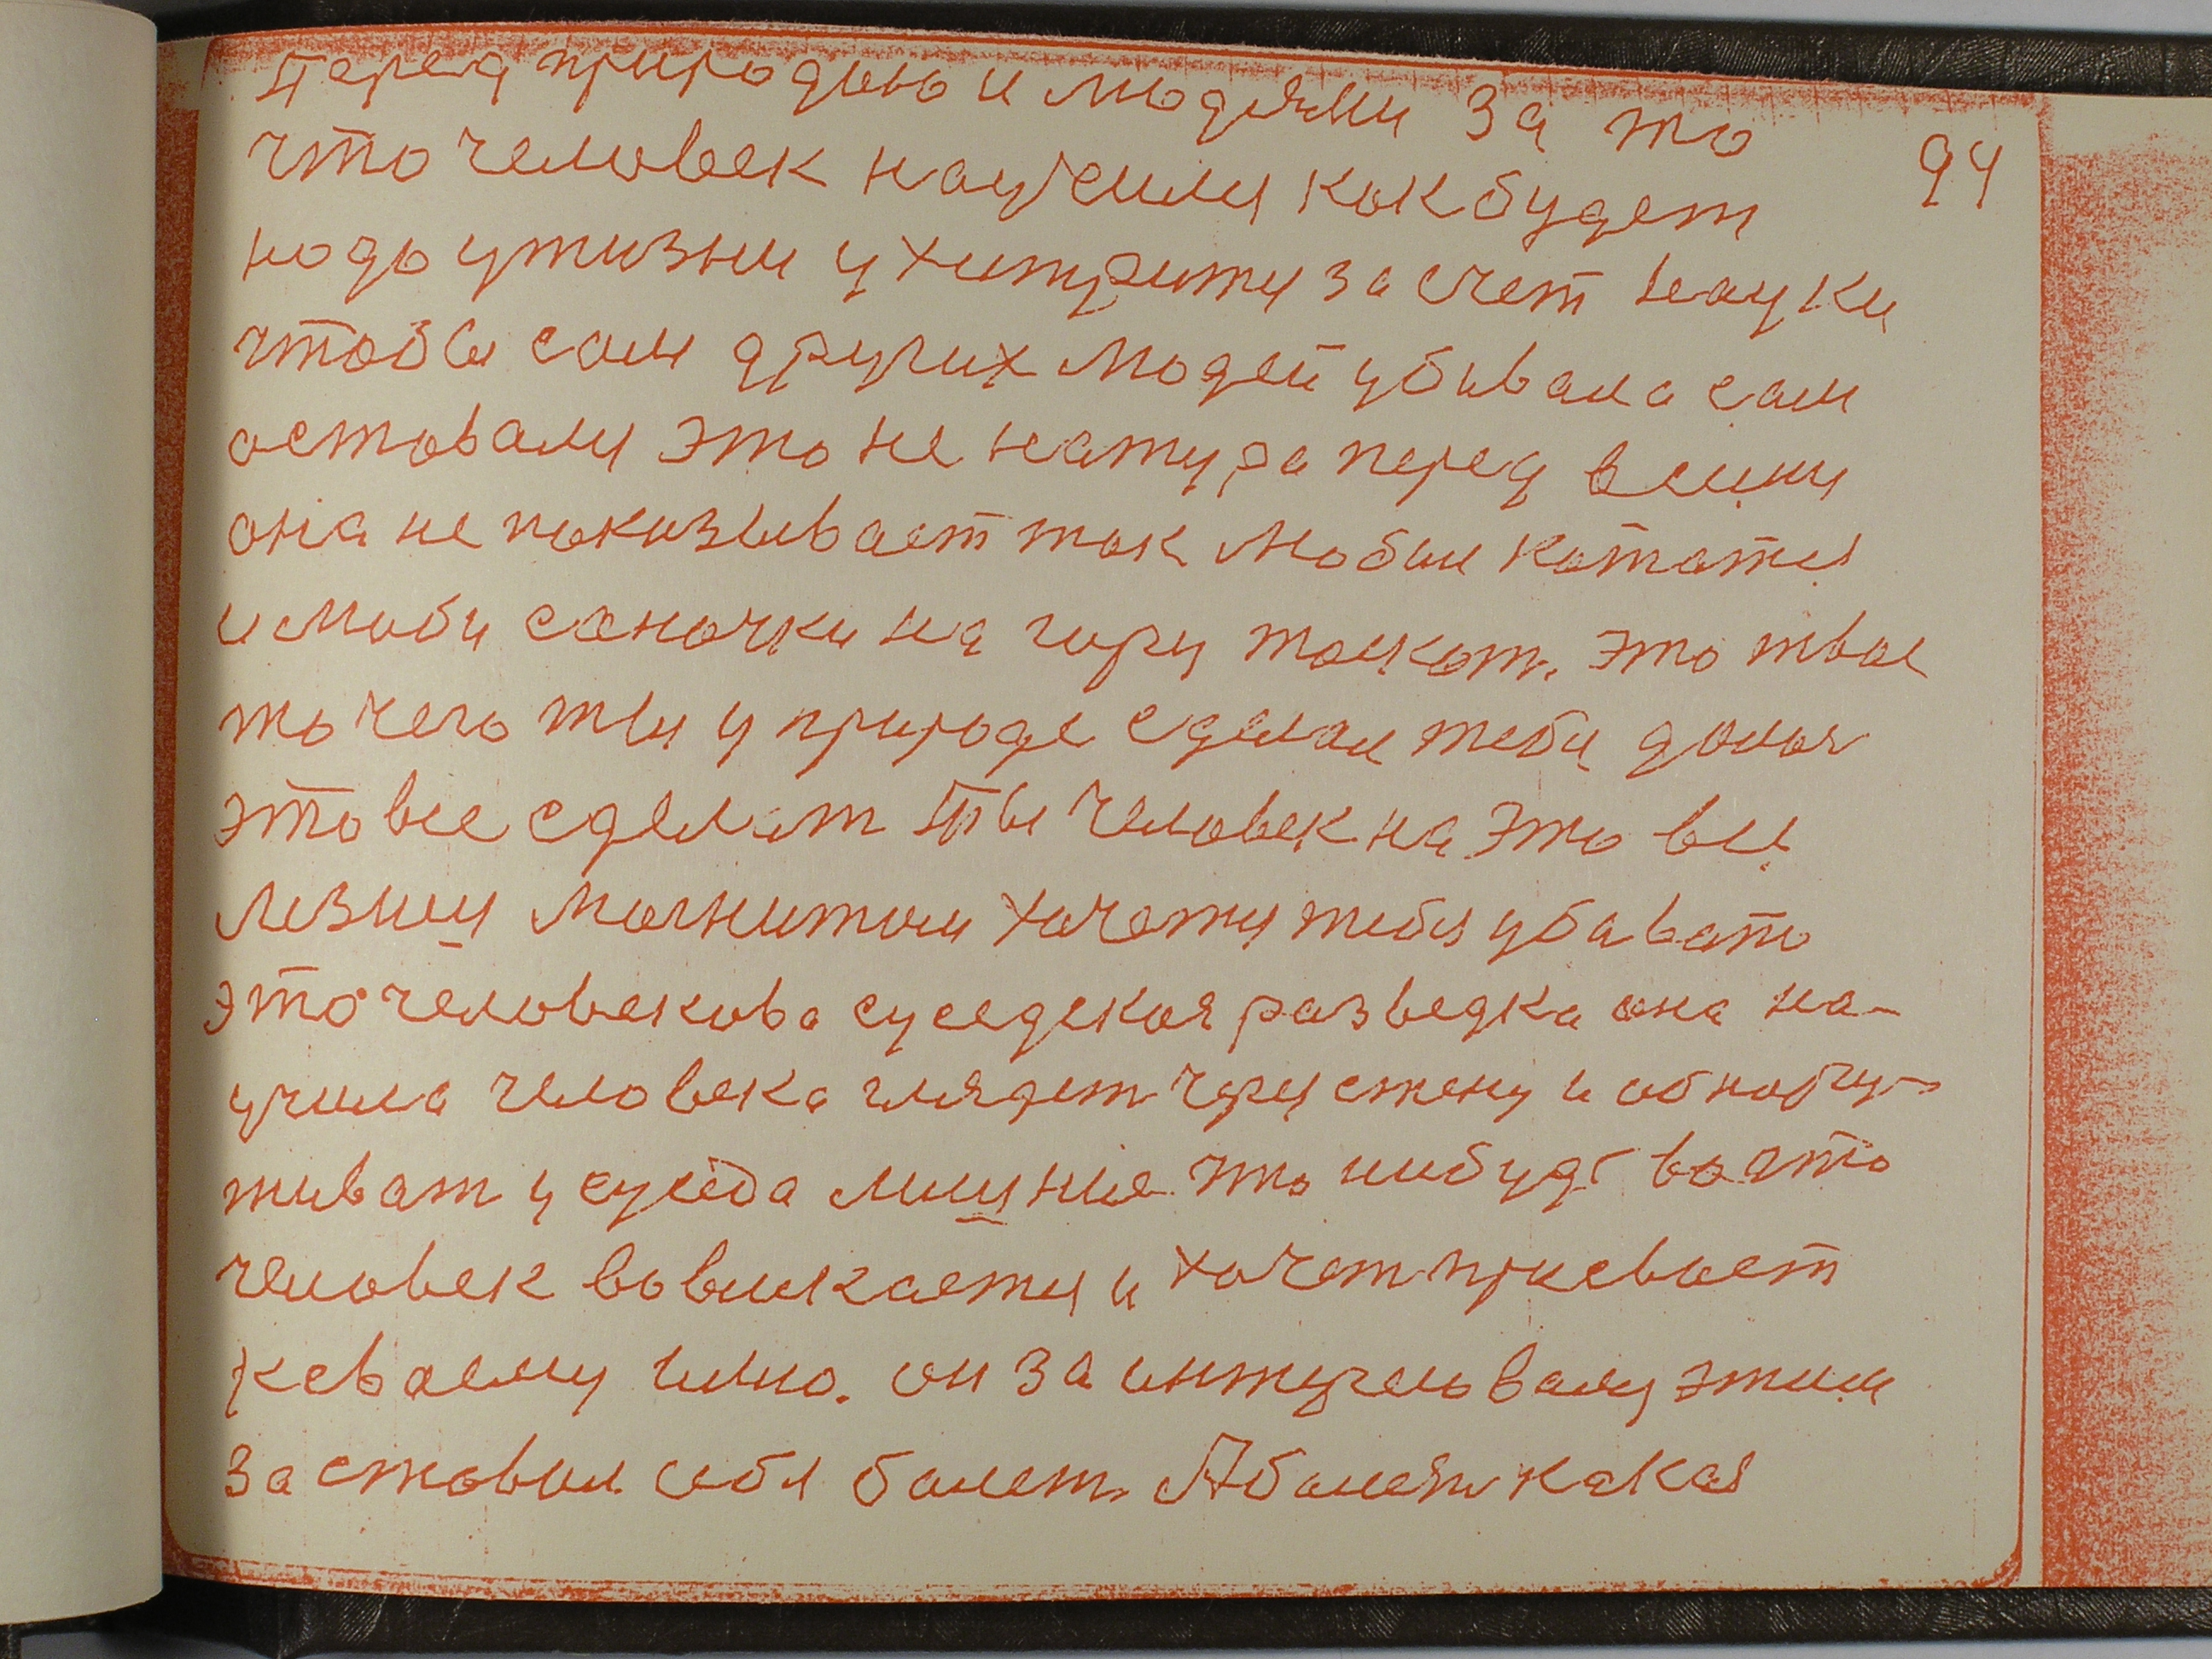 перед природыю и людями за то
94
что человек научился как будет
надо у жизни ухитритця за счет науки
чтобы сам других людей убивал а сам
оставался это не натура перед всими
она не показывает так любиш кататця
и люби саночки на гору таскат. это твое
то чего ты у природе сделал тебя доля
это все сделат ты человек на это все
лезиш магнитом хочетця тебя убават
это человекова суседская разведка она на-
учила человека глядет через стену и обнару-
живат у суседа лишние што нибудь во што
человек вовлекаетця и хочет присвоет
к своему имю. он заинтурисовался этим
заставил себя болет. А болезн какая